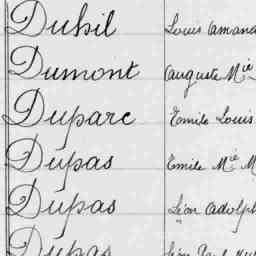 Dubil Louis Amand
Dumont Auguste Mie
Duparc Emile Louis
Dupas Emile Mie M
Dupas Léon Adolph
Dupas Léon